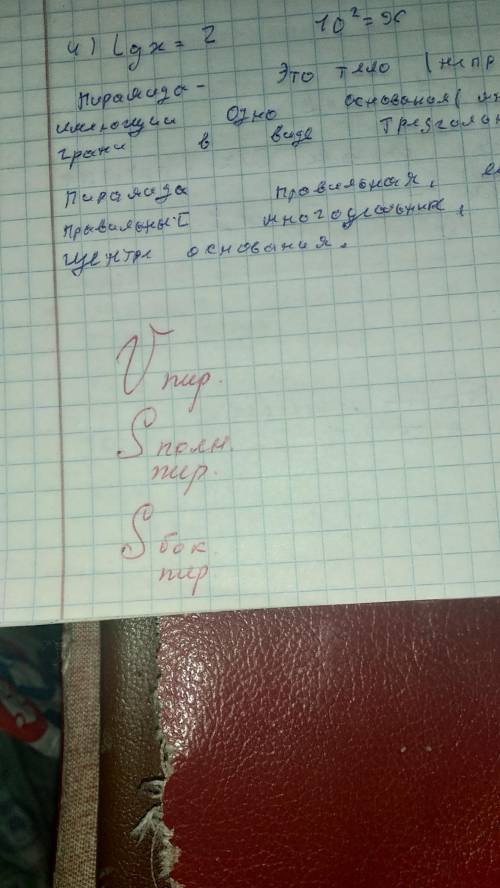 4) Lgx = 2 10² = x
Пирамида - Это тело (непр
имеющии одно основания(
грани в виде треугольн
Пирамида правильная, е
правильный многоугольник,
центре основания.
V пир.
S полн.
пир.
S бок
пир